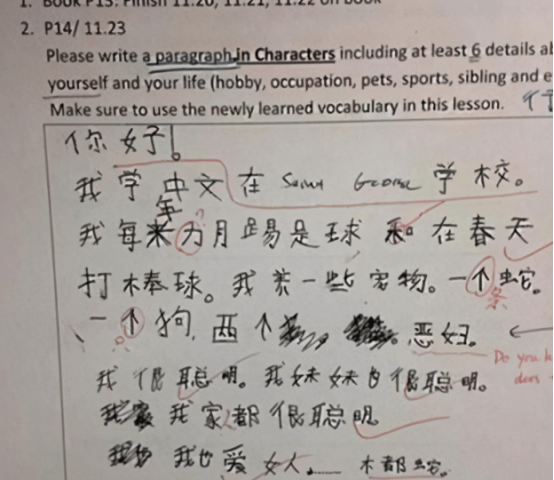 1. Book P13: Finish 11.20, 11.21, 11.22 on book
2. P14/ 11.23
Please write a paragraph in Characters including at least 6 details ab
yourself and your life (hobby, occupation, pets, sports, sibling and e
Make sure to use the newly learned vocabulary in this lesson.
你好!
我学中文在 Saint George 学校。
年
我每 月踢是球 和在春天
打棒球。我养一些宠物。一个蛇。
条
一个狗,两个 恶妇。
Do you h
我很聪明。我妹妹也很聪明。
我家都很聪明
我也爱女人 木都蛇。